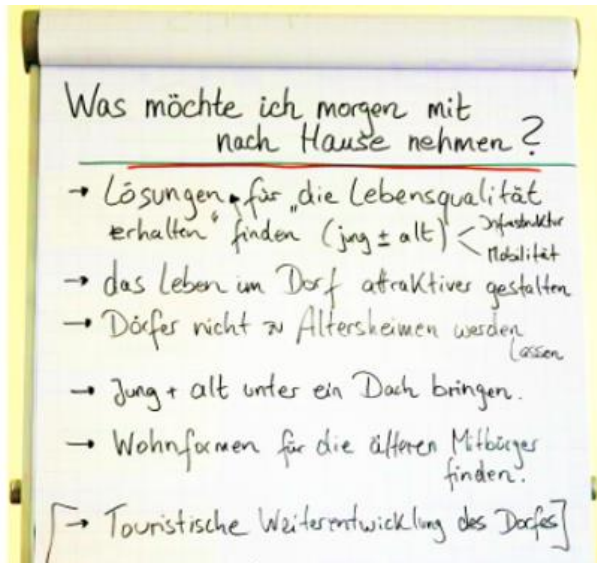 Was möchte ich morgen mit
nach Hause nehmen?
→ Lösungen für „die Lebensqualität
erhalten" finden (jung ± alt) < Infrastruktur
Mobilität
→ das Leben im Dorf attraktiver gestalten
→ Dörfer nicht zu Altersheimen werden
lassen
→ Jung + alt unter ein Dach bringen.
→ Wohnformen für die älteren Mitbürger
finden.
[→ Touristische Weiterentwicklung des Dorfes]